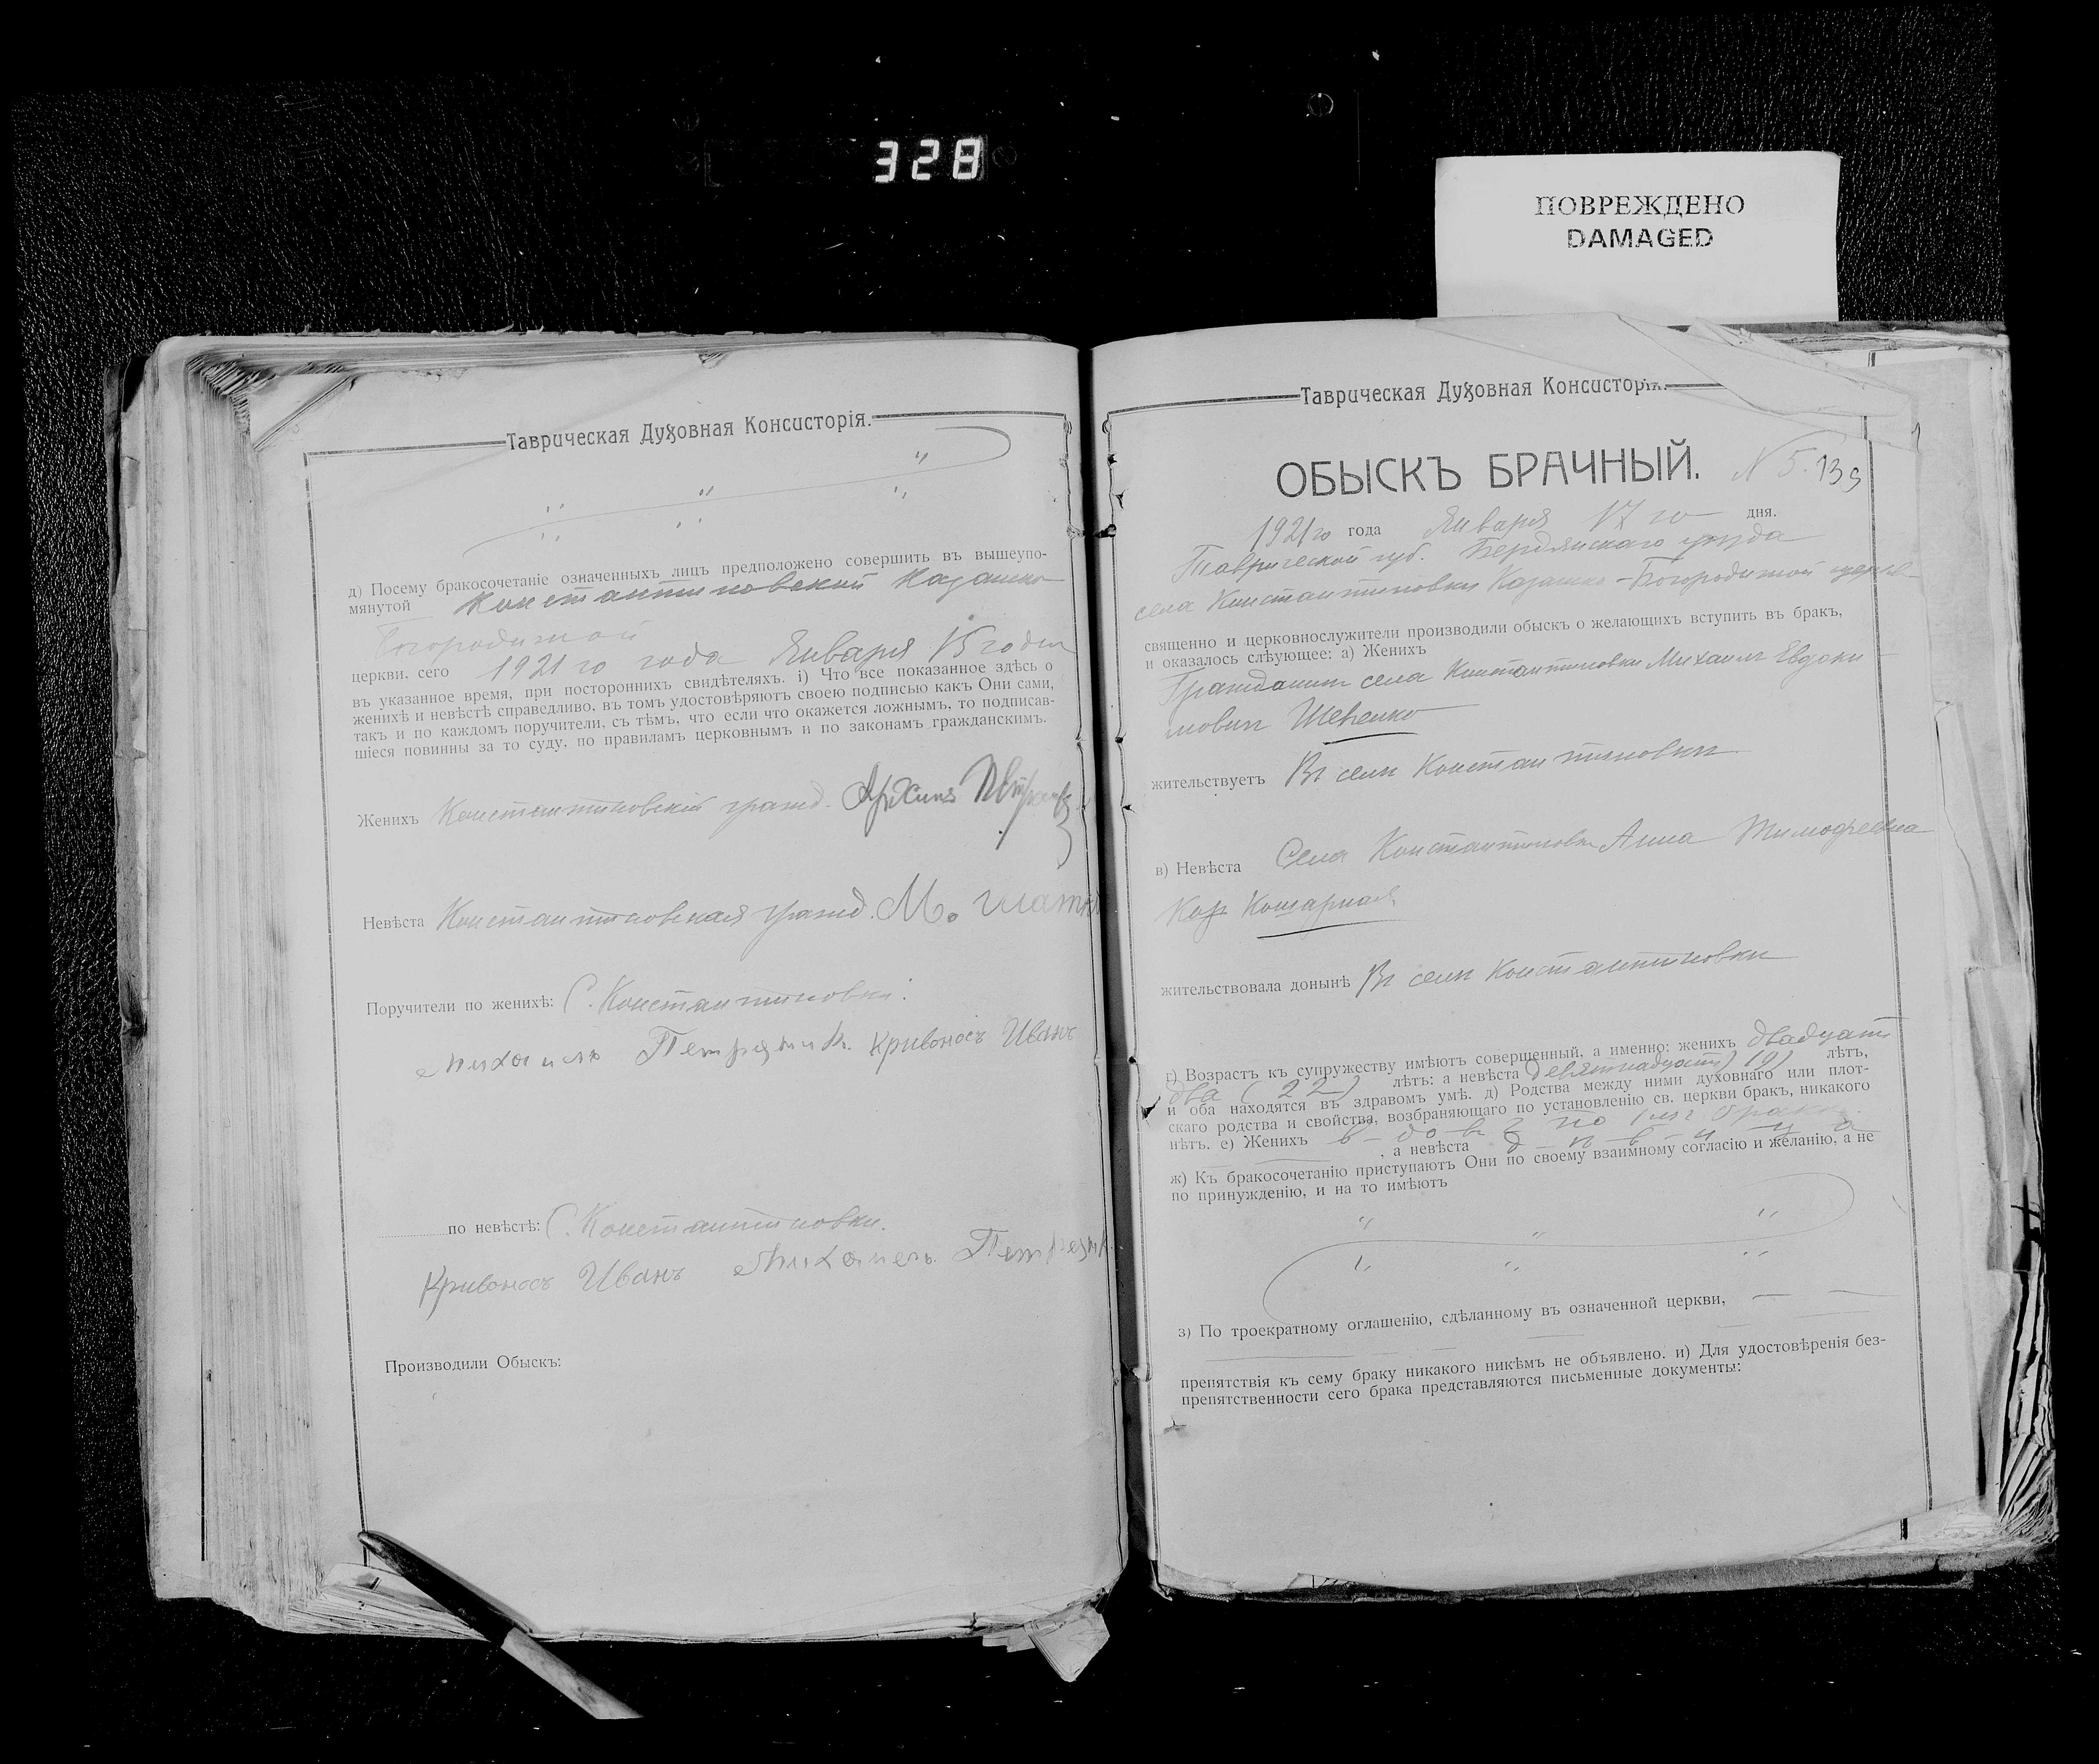 328
ПОВРЕЖДЕНО
DAMAGED
Таврическая Духовная Консисторія.
д) Посему бракосочетаніе означенныхъ лицъ предположено совершить въ вышеупо-
мянутой Константиновской Казанско
Богородичной
церкви, сего 1921 го года Января 15 го дня
въ указанное время, при постороннихъ свидѣтеляхъ. і) Что все показанное здѣсь о
женихѣ и невѣстѣ справедливо, въ томъ удостовѣряютъ своею подписью какъ Они сами,
такъ и по каждомъ поручители, съ тѣмъ, что если что окажется ложнымъ, то подписав-
шіеся повинны за то суду, по правиламъ церковнымъ и по законамъ гражданскимъ.
Женихъ Константиновскій гражд. Архипъ
Невѣста Константиновская гражд. М.
Поручители по женихѣ: С. Константиновки.
Кривоносъ Иванъ
по невѣстѣ: С. Константиновки.
Кривоносъ Иванъ Михаилъ
Производили Обыскъ:
Таврическая Духовная Консисторія.
ОБЫСКЪ БРАЧНЫЙ. N 5. 139
1921 го года Января 17 го дня.
Таврической губ. Бердянскаго уѣзда
села Константиновки Казанско-Богородичной церкв-
священно и церковнослужители производили обыскъ о желающихъ вступить въ бракъ,
и оказалось слѣующее: а) Женихъ
Гражданинъ села Константиновки Михаилъ Евдоки
мовъ Шевченко
жительствуетъ Въ селѣ Константиновкѣ
в) Невѣста Села Константиновки Анна Тимофеевна
Кошарная
жительствовала донынѣ Въ селѣ Константиновки
г) Возрастъ къ супружеству имѣютъ совершенный, а именно: женихъ двадцать
два (22) лѣтъ: а невѣста девятнадцать 19) лѣтъ,
и оба находятся въ здравомъ умѣ. д) Родства между ними духовнаго или плот-
скаго родства и свойства, возбраняющаго по установленію св. церкви бракъ, никакого
нѣтъ. е) Женихъ в-дов-ъ по бракѣ
, а невѣста д-ѣ-в-и-ц-а
ж) Къ бракосочетанію приступаютъ Они по своему взаимному согласію и желанію, а не
по принужденію, и на то имѣютъ
з) По троекратному оглашенію, сдѣланному въ означенной церкви,
препятствія къ сему браку никакого никѣмъ не объявлено. и) Для удостовѣренія без-
препятственности сего брака представляются письменные документы: